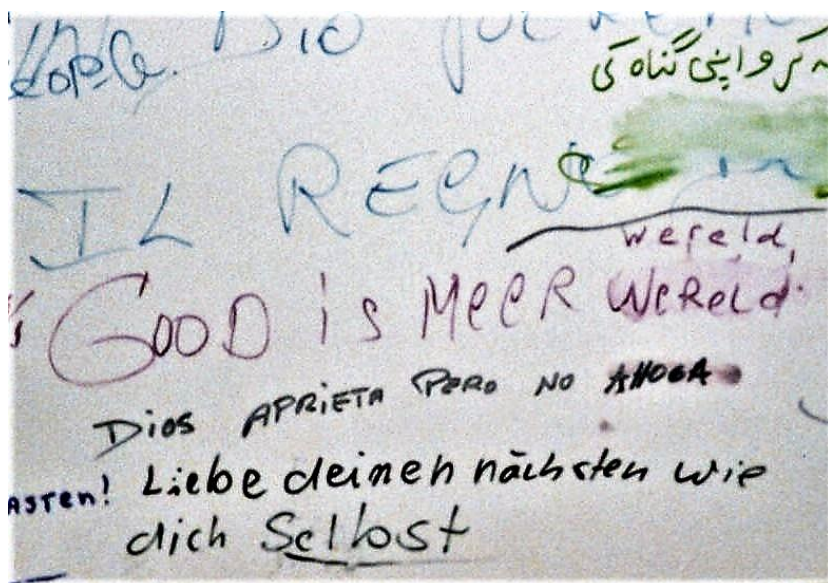 Dio
کر و اپنی گناہ کی
IL REGNO
wereld,
GOOD is MEER WERELD.
Dios APRIETA PERO NO AHOGA
ASTEN! Liebe deinen nächsten wie
dich Selbst